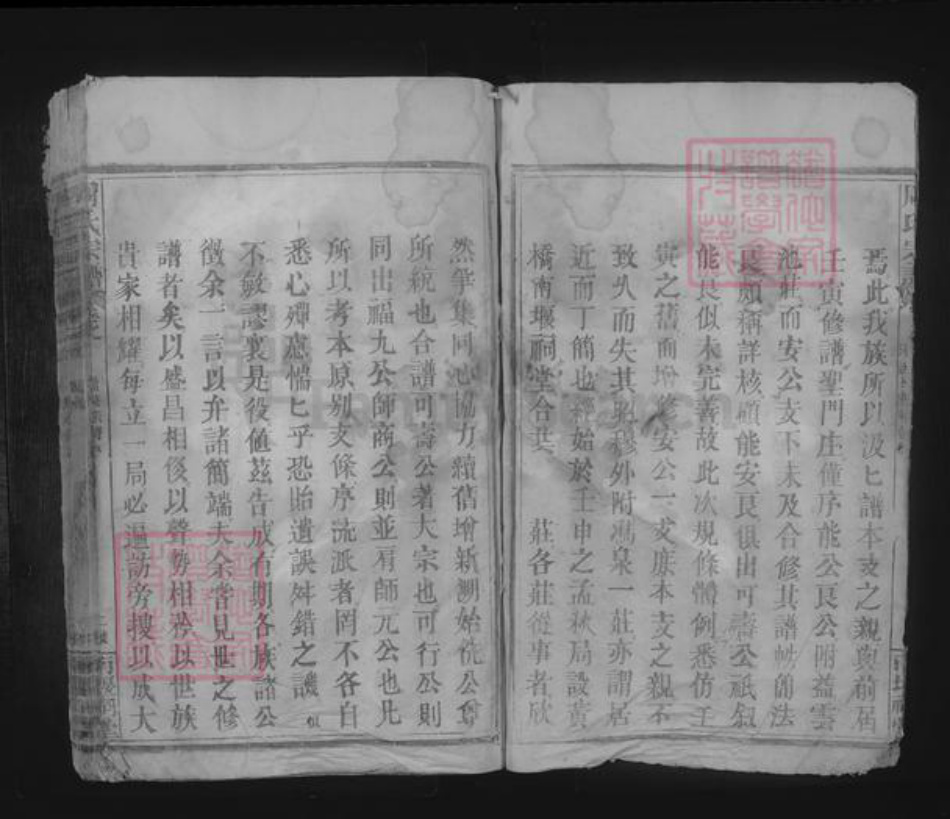 焉此我族所以汲匕譜本支之親與前屆
壬寅修譜聖門庄僅序能公艮公附益雲
池莊而安公支下未及合修其譜帙簡法
良頗稱詳核顧能安艮俱出可壽公祇叙
能艮似未完善故此次規條體例悉仿壬
寅之舊而增修安公一支庶本支之親不
致久而失其昭穆外附馮泉一莊亦謂居
近而丁簡也經始於壬申之孟秋局設黃
橋南堰嗣堂合共 莊各莊從事者欣
然爭集同心協力續舊增新溯始侁公會
所統也合譜可壽公者大宗也可行公則
同出福九公師商公則並肩師元公也凡
所以考本原別支條序流派者罔不各自
悉心殫慮惴匕乎恐貽遺誤舛錯之譏 似
不敏謬襄是役値茲告成有期各族諸公
徵余一言以弁諸簡端夫余嘗見世之修
譜者矣以盛昌相後以聲勢相矜以世族
貴家相耀每立一局必遍訪旁搜以成大